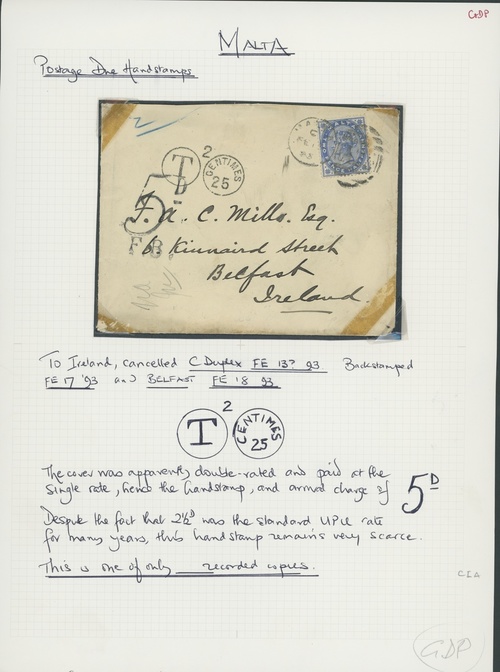 GDP
MALTA
Postage Due Handstamps
2
T
CENTIMES
25
5D
F.B.
F. A. C. Mills. Esq.
6 Kinnaird Street
Belfast
Ireland.
To Ireland, cancelled C Duplex FE 13? 93 Backstamped
FE 17 '93 and BELFAST FE 18 93
2
T CENTIMES 25
The cover was apparently double-rated and paid at the
single rate, hence the handstamp, and arrival charge of 5D
Despite the fact that 2½D was the standard UPU rate
for many years, this handstamp remains very scarce.
This is one of only ___ recorded copies.
GDP